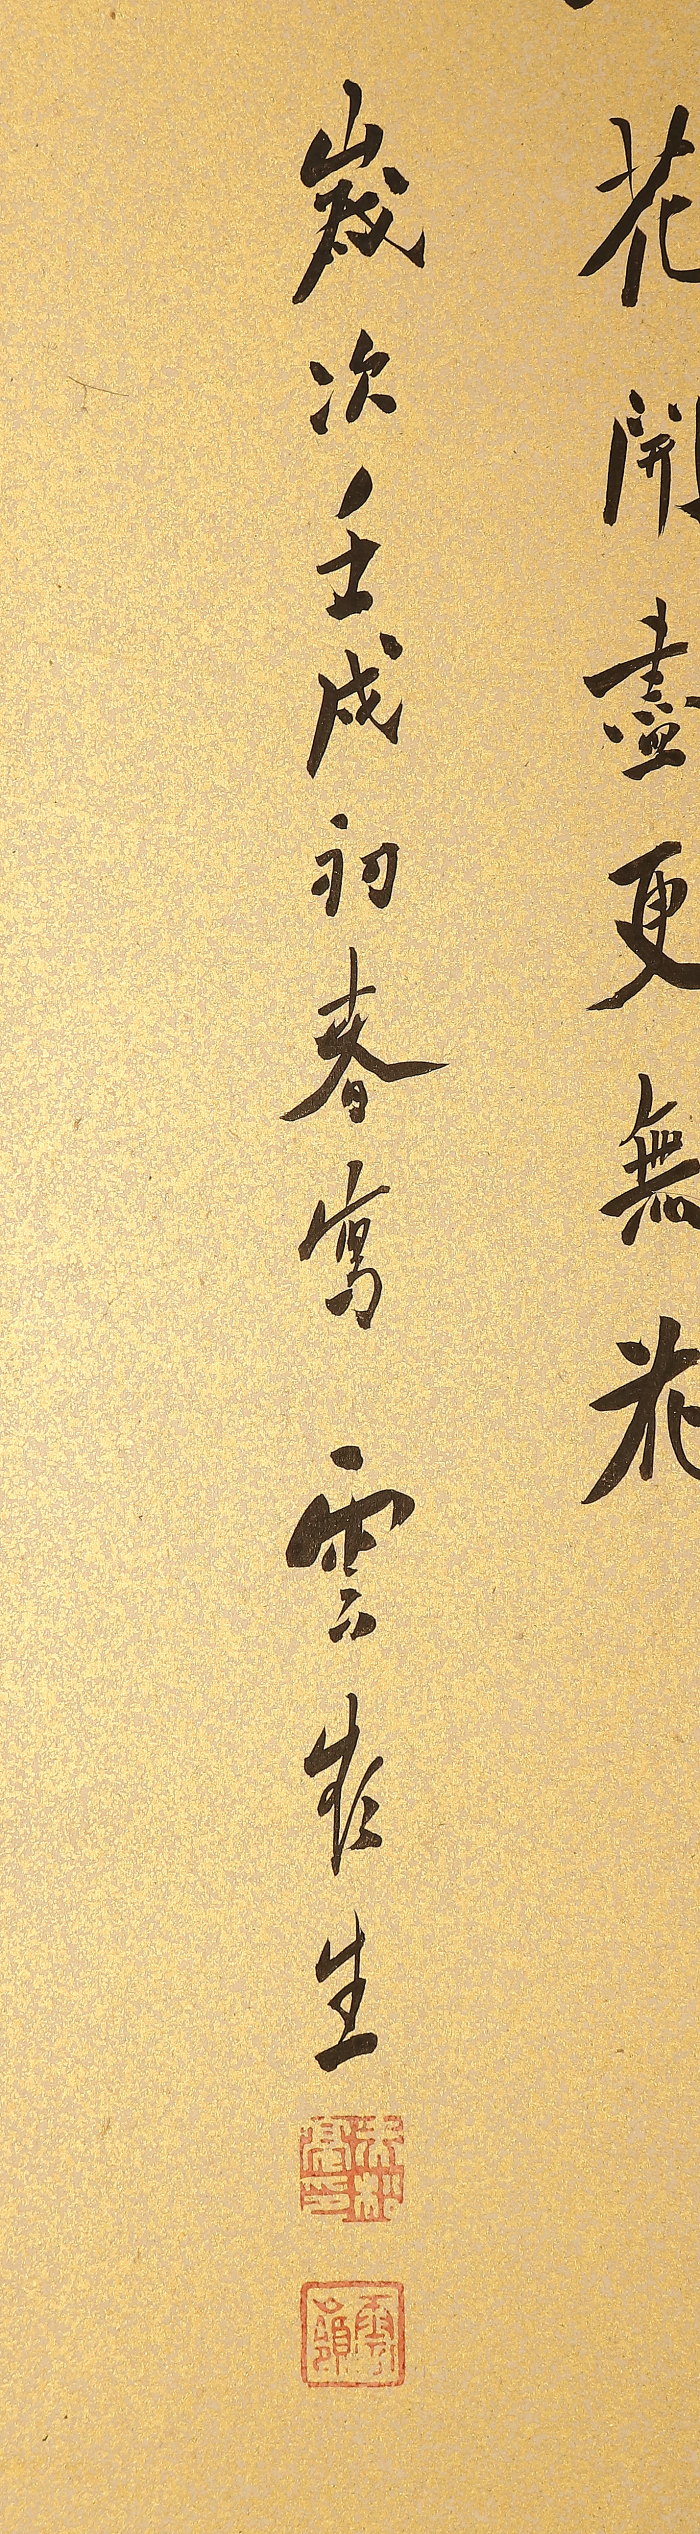 花開盡更無花
歲次壬戌初春寫 雲嶺生
雲嶺